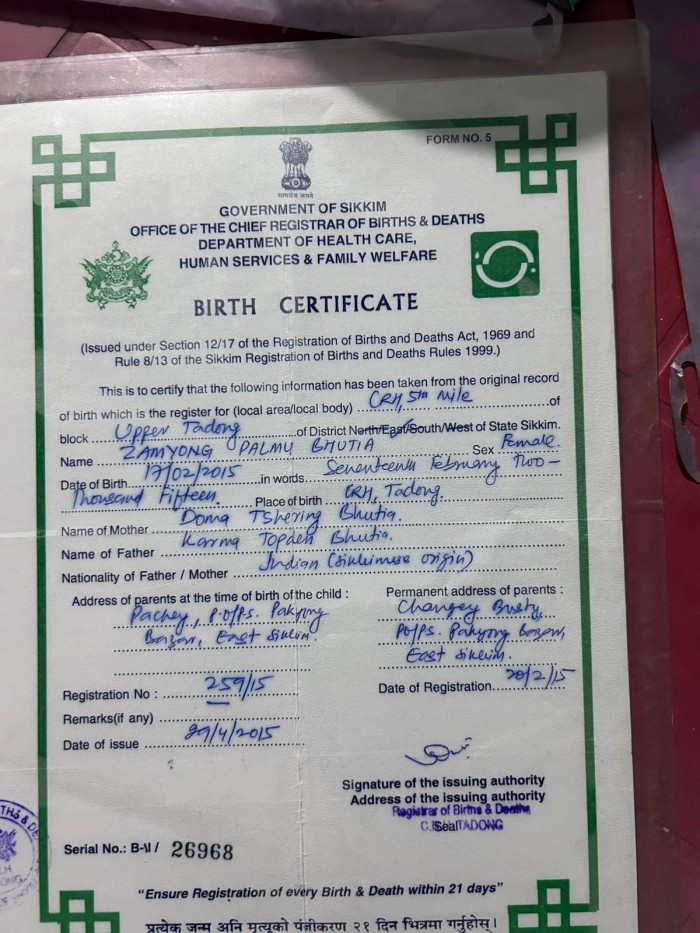 FORM NO. 5
सत्यमेव जयते
GOVERNMENT OF SIKKIM
OFFICE OF THE CHIEF REGISTRAR OF BIRTHS & DEATHS
DEPARTMENT OF HEALTH CARE,
HUMAN SERVICES & FAMILY WELFARE
BIRTH CERTIFICATE
(Issued under Section 12/17 of the Registration of Births and Deaths Act, 1969 and
Rule 8/13 of the Sikkim Registration of Births and Deaths Rules 1999.)
This is to certify that the following information has been taken from the original record
of birth which is the register for (local area/local body) CRH, 5th Mile of
block Upper Tadong of District North/East/South/West of State Sikkim.
Name ZAMYONG PALMU BHUTIA Sex Female
Date of Birth 17/02/2015 in words Seventeenth February Two-
Thousand Fifteen. Place of birth CRH, Tadong.
Name of Mother Doma Tshering Bhutia.
Name of Father Karma Topden Bhutia.
Nationality of Father / Mother Indian (Sikkimese Origin)
Address of parents at the time of birth of the child :
Pachey, P.O/P.S. Pakyong
Bazar, East Sikkim.
Permanent address of parents :
Changey Busty,
PO/PS. Pakyong Bazar,
East Sikkim.
Registration No : 259/15
Date of Registration 20/2/15
Remarks(if any)
Date of issue 29/4/2015
Signature of the issuing authority
Address of the issuing authority
Registrar of Births & Deaths
Seal TADONG
Serial No.: B-VI / 26968
"Ensure Registration of every Birth & Death within 21 days"
प्रत्येक जन्म अनि मृत्युको पंजीकरण २१ दिन भित्रमा गर्नुहोस्।